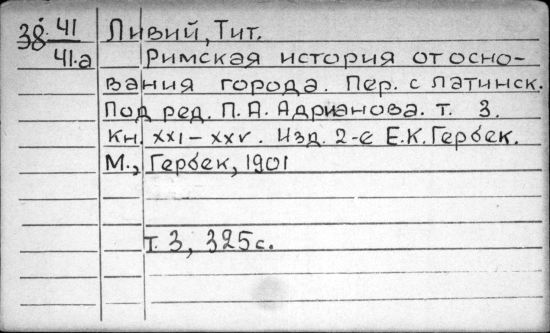 38. 41 Ливий, Тит.
41.а Римская история от осно-
вания города. Пер. с латинск.
Под ред. П. А. Адрианова. т. 3.
кн. XXI – XXV. Изд. 2-е Е.К. Гербек.
М., Гербек, 1901
т. 3, 325 с.